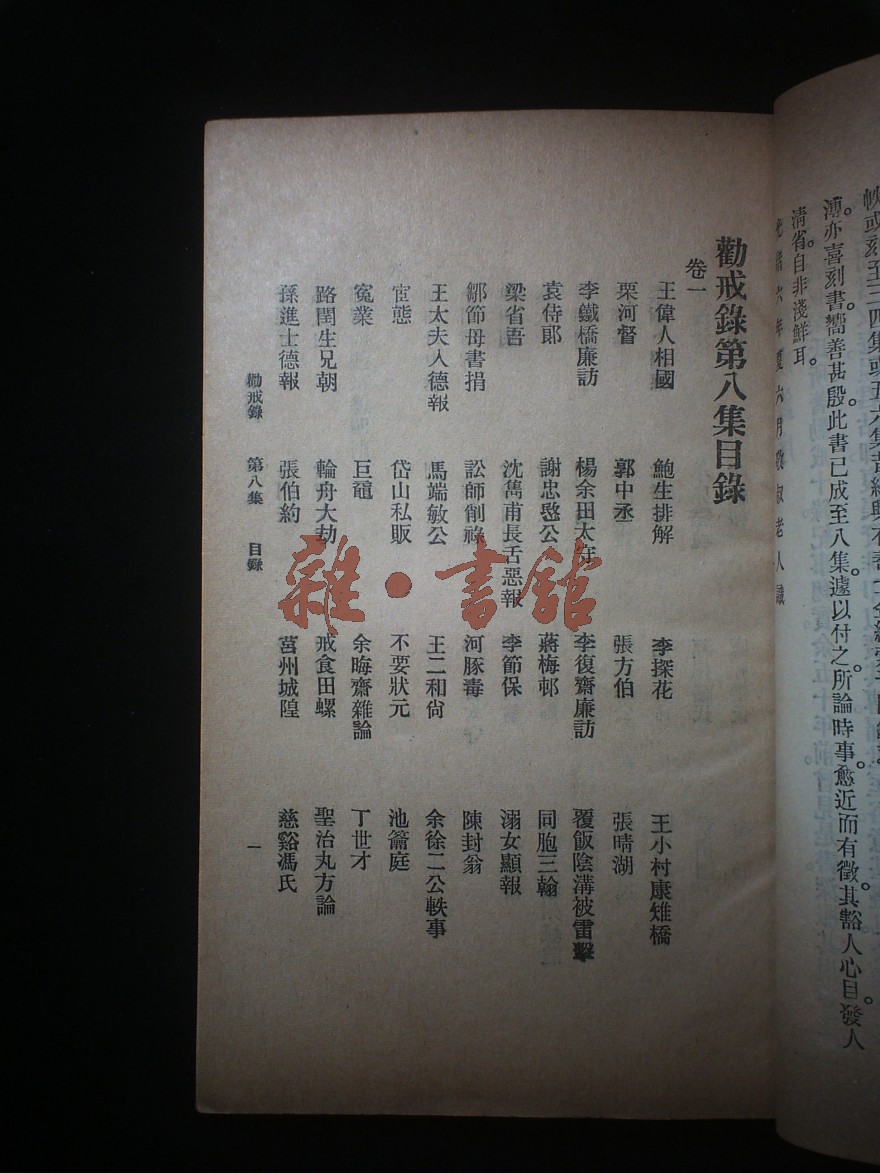 帙或刻至三四集或五六集
薄亦喜刻書。嚮善甚殷。此書已成至八集。遽以付之。所論時事。愈近而有徵。其豁人心目。發人
淸省。自非淺鮮耳。
六年夏六月 老人識
勸戒錄第八集目錄
卷一
王偉人相國 鮑生排解 李探花 王小村康雉橋
栗河督 郭中丞 張方伯 張晴湖
李鐵橋廉訪 楊余田太守 李復齋廉訪 覆飯陰溝被雷擊
袁侍郞 謝忠愍公 蔣梅邨 同胞三翰
梁省吾 沈雋甫長舌惡報 李節保 溺女顯報
鄒節母書捐 訟師削祿 河豚毒 陳封翁
王太夫人德報 馬端敏公 王二和尙 余徐二公軼事
宦態 岱山私販 不要狀元 池籥庭
冤業 巨黿 余晦齋雜論 丁世才
路閏生兄朝 輪舟大劫 戒食田螺 聖治丸方論
孫進士德報 張伯約 莒州城隍 慈谿馮氏
勸戒錄 第八集 目錄 一
雜·書館